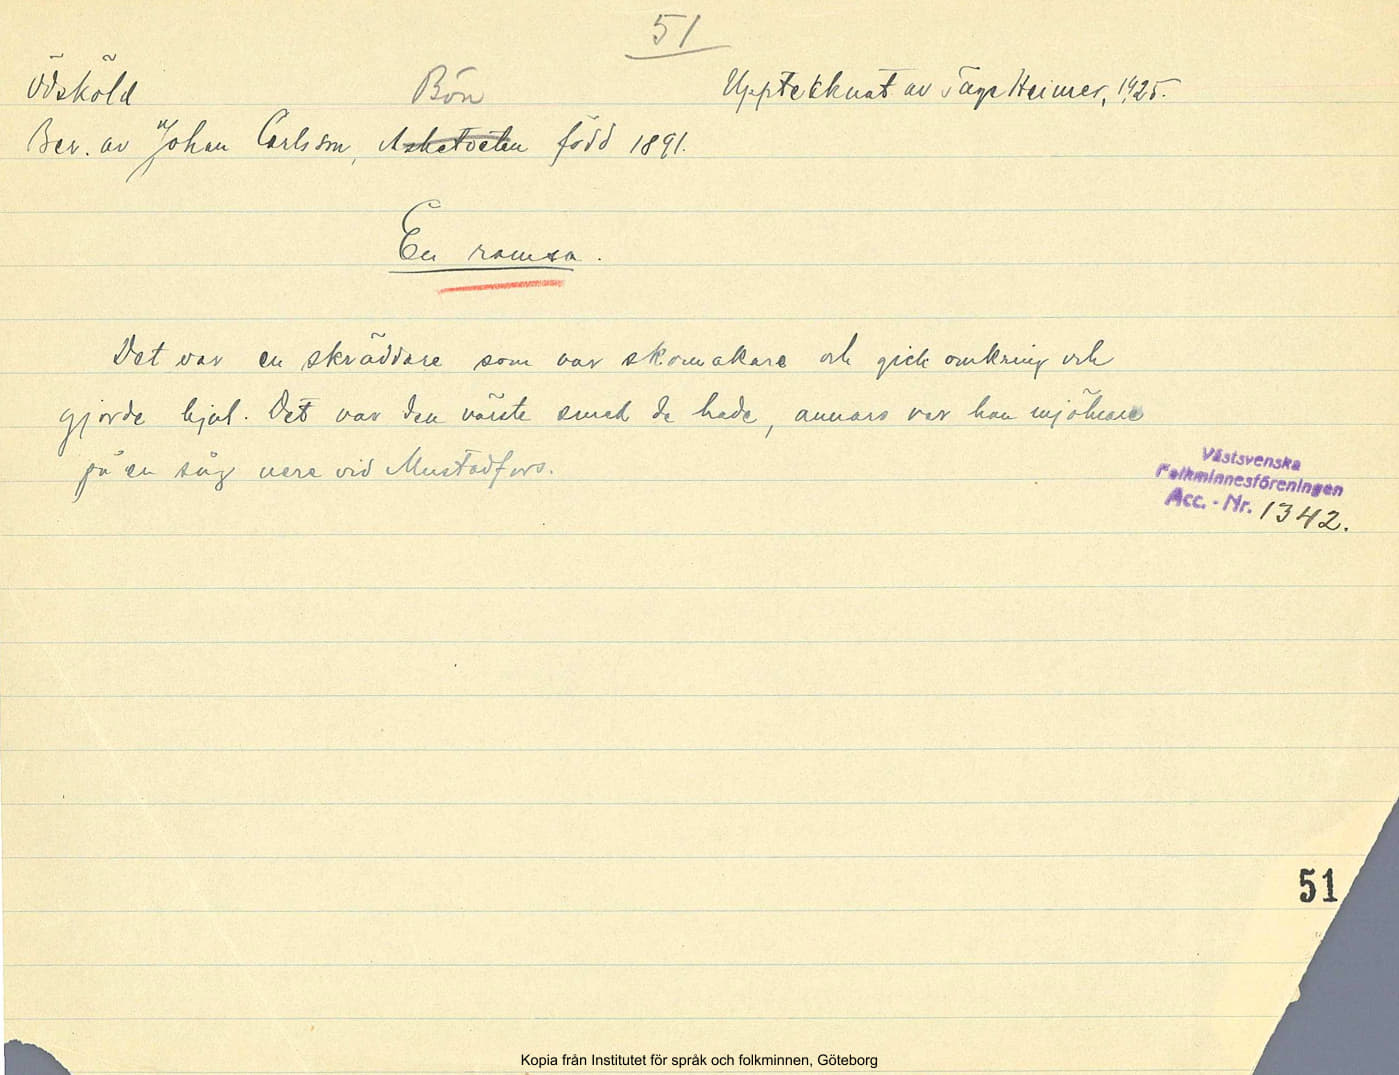 51
Ödsköld Bön Upptecknat av Tage Heimer, 1925.
Ber. av Johan Carlsson, född 1891.
En ramsa.
Det var en skräddare som var skomakare och gick omkring och
gjorde hjul. Det var den värste smed de hade, annars var han mjölnare
på en såg nere vid Mustadfors.
Västsvenska
Folkminnesföreningen
Acc. - Nr. 1342.
51
Kopia från Institutet för språk och folkminnen, Göteborg